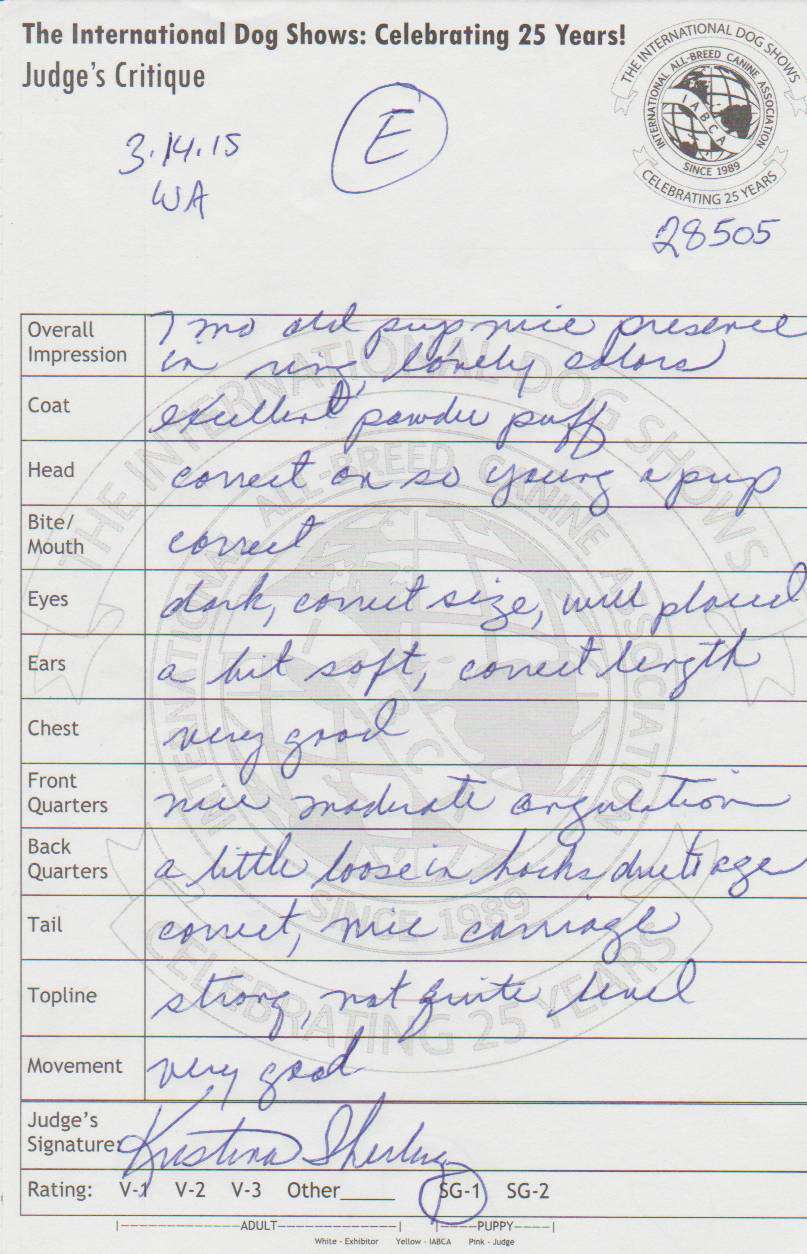 The International Dog Shows: Celebrating 25 Years!
Judge's Critique
THE INTERNATIONAL DOG SHOWS
INTERNATIONAL ALL-BREED CANINE ASSOCIATION
IABCA
SINCE 1989
CELEBRATING 25 YEARS
3.14.15
WA
E
28505
Overall Impression 7 mo old pup nice presence
in ring, lovely colors
Coat excellent powder puff
Head correct on so young a pup
Bite/ Mouth correct
Eyes dark, correct size, well placed
Ears a bit soft, correct length
Chest very good
Front Quarters nice moderate angulation
Back Quarters a little loose in hocks due to age
Tail correct, nice carriage
Topline strong, not quite level
Movement very good
Judge's Signature: Kristina
Rating: V-1 V-2 V-3 Other_____ SG-1 SG-2
|---------------ADULT---------------| |-----PUPPY----|
White - Exhibitor Yellow - IABCA Pink - Judge
THE INTERNATIONAL DOG SHOWS
INTERNATIONAL ALL-BREED CANINE ASSOCIATION
IABCA
SINCE 1989
CELEBRATING 25 YEARS